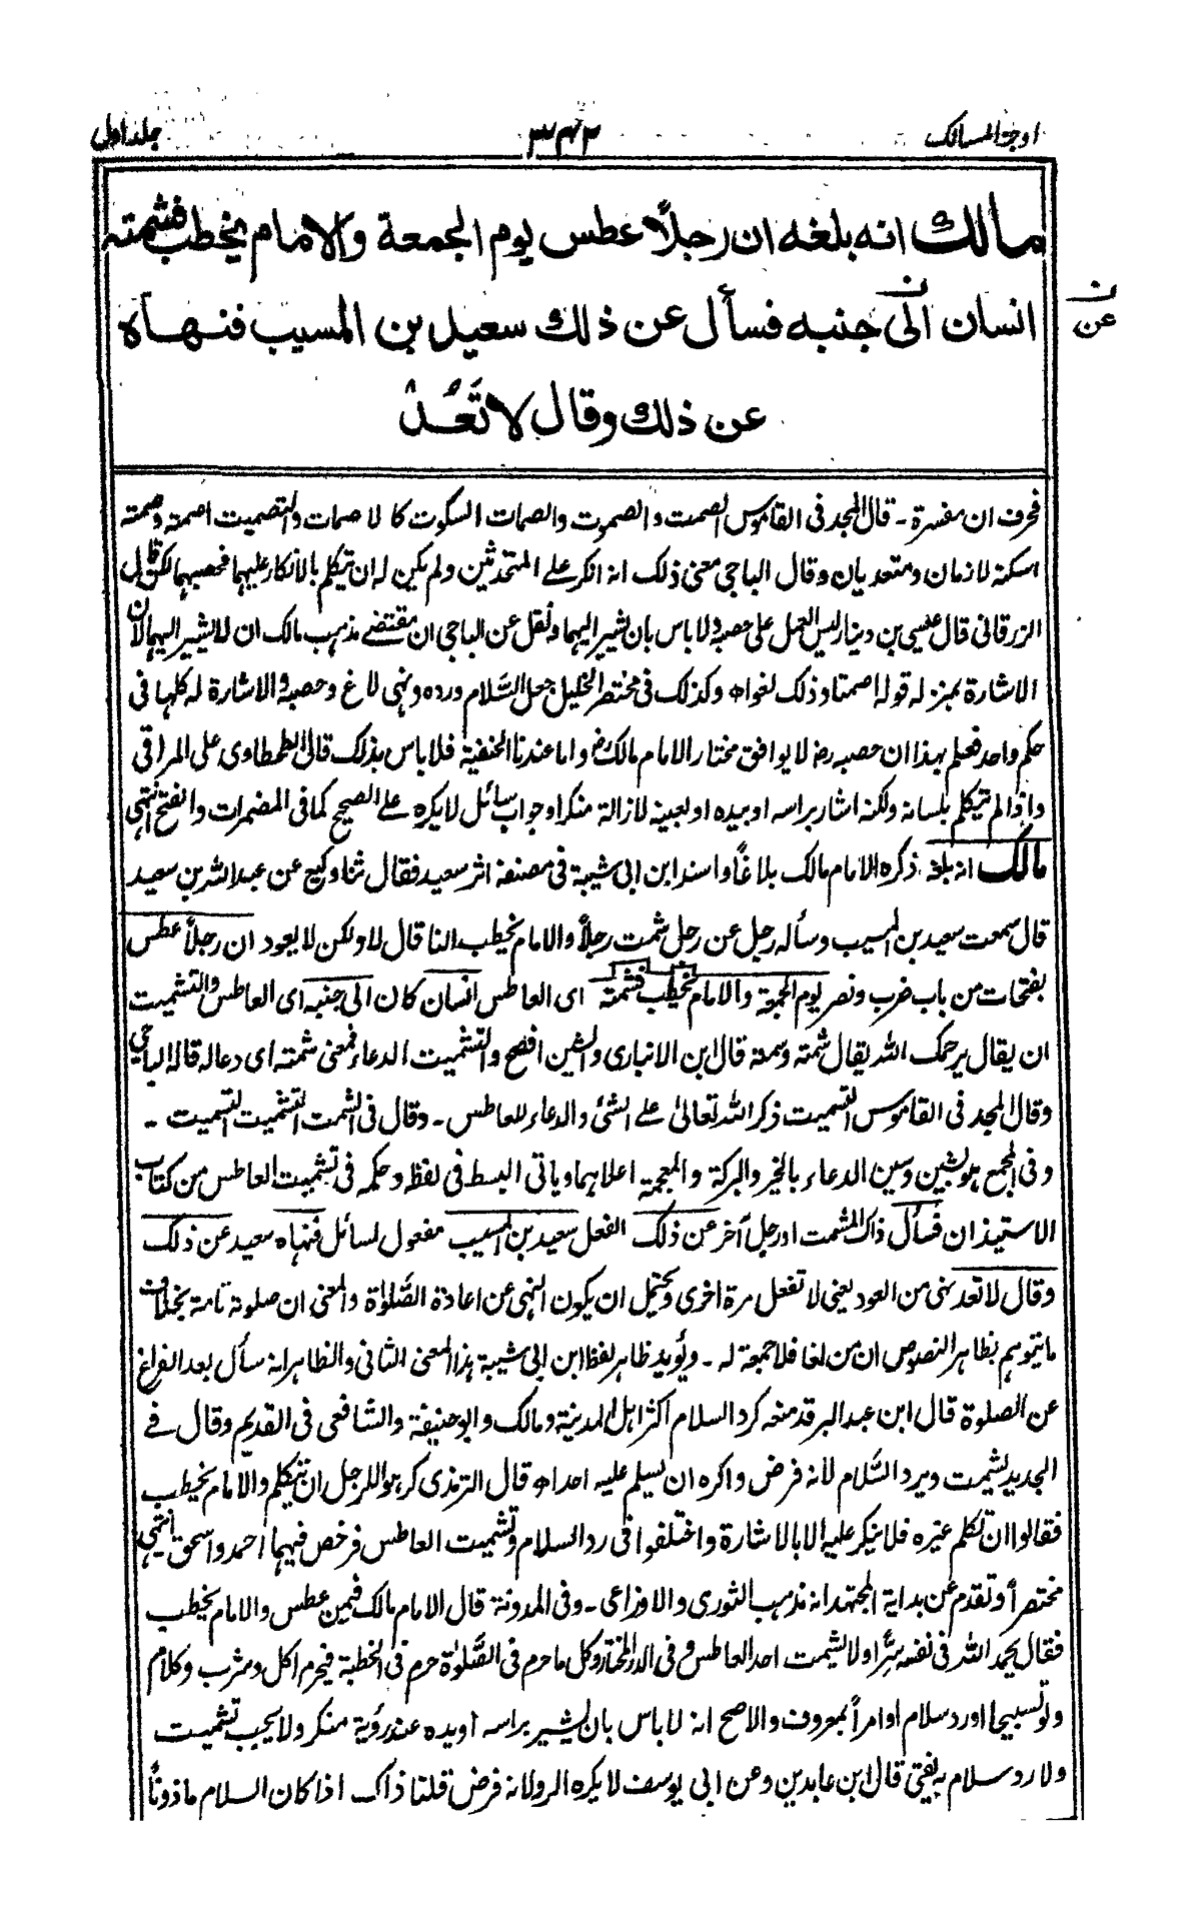 اوجز المسالك
٣٤٢
جلد اول
مالك انه بلغه ان رجلاً عطس يوم الجمعة والامام يخطب فشمته
انسان الى جنبه فسأل عن ذلك سعيد بن المسيب فنهاه
ن
عن
عن ذلك وقال لا تَعُدْ
فحرف ان مفسرة ـ قال المجد فى القاموس الصمت والصموت والصمات السكوت كالاصمات والتصميت اصمته وصمته
اسكته لازمان ومتعديان وقال الباجى معنى ذلك انه انكر على المتحدثين ولم يكن له ان يتكلم بالانكار عليهما فحصبهما لكن قال
الزرقانى قال عيسى بن دينار ليس العمل على حصبه ولا باس بان يشير اليهما ونقل عن الباجى ان مقتضے مذهب مالك ان لا يشير اليهما لان
الاشارة بمنزلة قوله اصمتا وذلك لغو اه وكذلك فى مختصر الخليل جعل السَّلام ورده ونهى لاغ وحصبه والاشارة له كلها فى
حكم واحد فعلم بهذا ان حصبه رضـ لا يوافق مختار الامام مالك رضـ واما عندنا الحنفية فلا باس بذلك قال الطحطاوى على المراقى
واذا لم يتكلم بلسانه ولكنه اشار براسه او بيده او بعينه لازالة منكر او جواب سائل لا يكره على الصحيح كما فى المضمرات والفتح انتهى
مالك انه بلغه ذكره الامام مالك بلاغًا واسند ابن ابى شيبة فى مصنفه اثر سعيد فقال ثنا وكيع عن عبد الله بن سعيد
قال سمعت سعيد بن المسيب وسأله رجل عن رجل شمت رجلاً والامام يخطب الناس قال لا ولكن لا يعود ان رجلاً عطس
بفتحات من باب ضرب ونصر يوم الجمعة والامام يخطب فشمته اى العاطس انسان كان الى جنبه اى العاطس والتشميت
ان يقال يرحمك الله يقال شمته وسمته قال ابن الانبارى والشين افصح والتشميت الدعاء فمعنى شمته اى دعا له قاله الباجى
وقال المجد فى القاموس التسميت ذكر الله تعالىٰ على الشئ والدعاء للعاطس ـ وقال فى الشمت التشميت التسميت ـ
وفى المجمع هو بشين وسين الدعاء بالخير والبركة والمعجمة اعلاهما وياتى البسط فى لفظه وحكمه فى تشميت العاطس من كتاب
الاستيذان فسأل ذاك المشمت او رجل آخر عن ذلك الفعل سعيد بن المسيب مفعول لسائل فنهاه سعيد عن ذلك
وقال لا تعد نهى من العود يعنى لا تفعل مرة اخرى ويحتمل ان يكون النهى عن اعادة الصَّلوٰة والمعنى ان صلوته تامة بخلاف
ما يتوهم بظاهر النصوص ان من لغا فلا جمعة له ـ ويؤيد ظاهر لفظ ابن ابى شيبة هذا المعنى الثانى والظاهر انه سأل بعد الفراغ
عن الصلوة قال ابن عبد البر قد منعه كرد السلام اكثر اهل المدينة ومالك وابو حنيفة والشافعى فى القديم وقال فے
الجديد يشمت ويرد السَّلام لانه فرض واكره ان يسلم عليه احد اه قال الترمذى كرهوا للرجل ان يتكلم والامام يخطب
فقالوا ان تكلم غيره فلا ينكر عليه الا بالاشارة واختلفوا فى رد السلام وتشميت العاطس فرخص فيهما احمد واسحق انتهى
مختصراً وتقدم عن بداية المجتهد انه مذهب الثورى والاوزاعى ـ وفى المدونة قال الامام مالك فيمن عطس والامام يخطب
فقال يحمد الله فى نفسه سرًا ولا يشمت احد العاطس وفى الدر المختار وكل ما حرم فى الصَّلوٰة حرم فى الخطبة فيحرم اكل وشرب وكلام
ولو تسبيحا او رد سلام او امراً بمعروف والاصح انه لا باس بان يشير براسه او يده عند رؤية منكر ولا يجب تشميت
ولا رد سلام به يفتى قال ابن عابدين وعن ابى يوسف لا يكره الرد لانه فرض قلنا ذاك اذا كان السلام ماذوناً